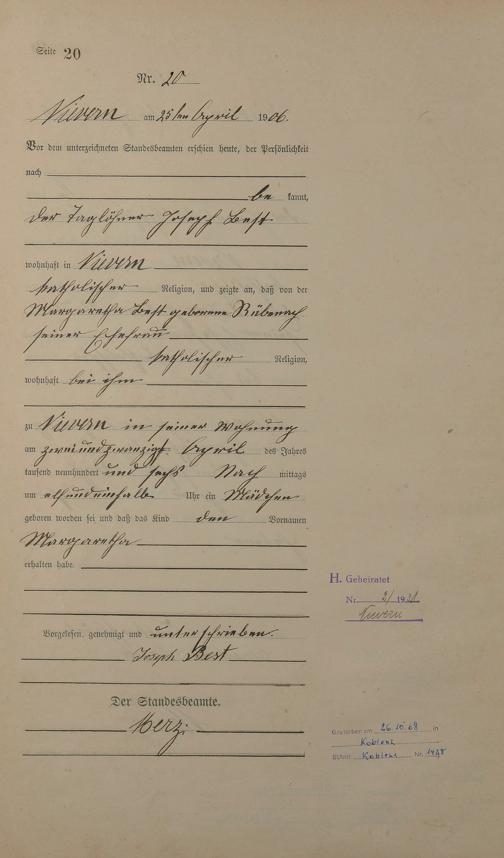 Seite 20
Nr. 20
Nievern am 25ten April 1906.
Vor dem unterzeichneten Standesbeamten erschien heute, der Persönlichkeit
nach
be kannt,
der Taglöhner Joseph Best
wohnhaft in Nievern
katholischer Religion, und zeigte an, daß von der
Margaretha Best geborene Rübenach
seiner Ehefrau
katholischer Religion,
wohnhaft bei ihm
zu Nievern in seiner Wohnung
am zweiundzwanzigst April des Jahres
tausend neunhundert und sechs Nach mittags
um elfundeinhalb Uhr ein Mädchen
geboren worden sei und daß das Kind den Vornamen
Margaretha
erhalten habe.
Vorgelesen, genehmigt und unterschrieben.
Joseph Best
Der Standesbeamte.
Merz
H. Geheiratet
Nr. 2/1931
Nievern
Gestorben am 26.10.68 in
Koblenz
StAmt Koblenz Nr.